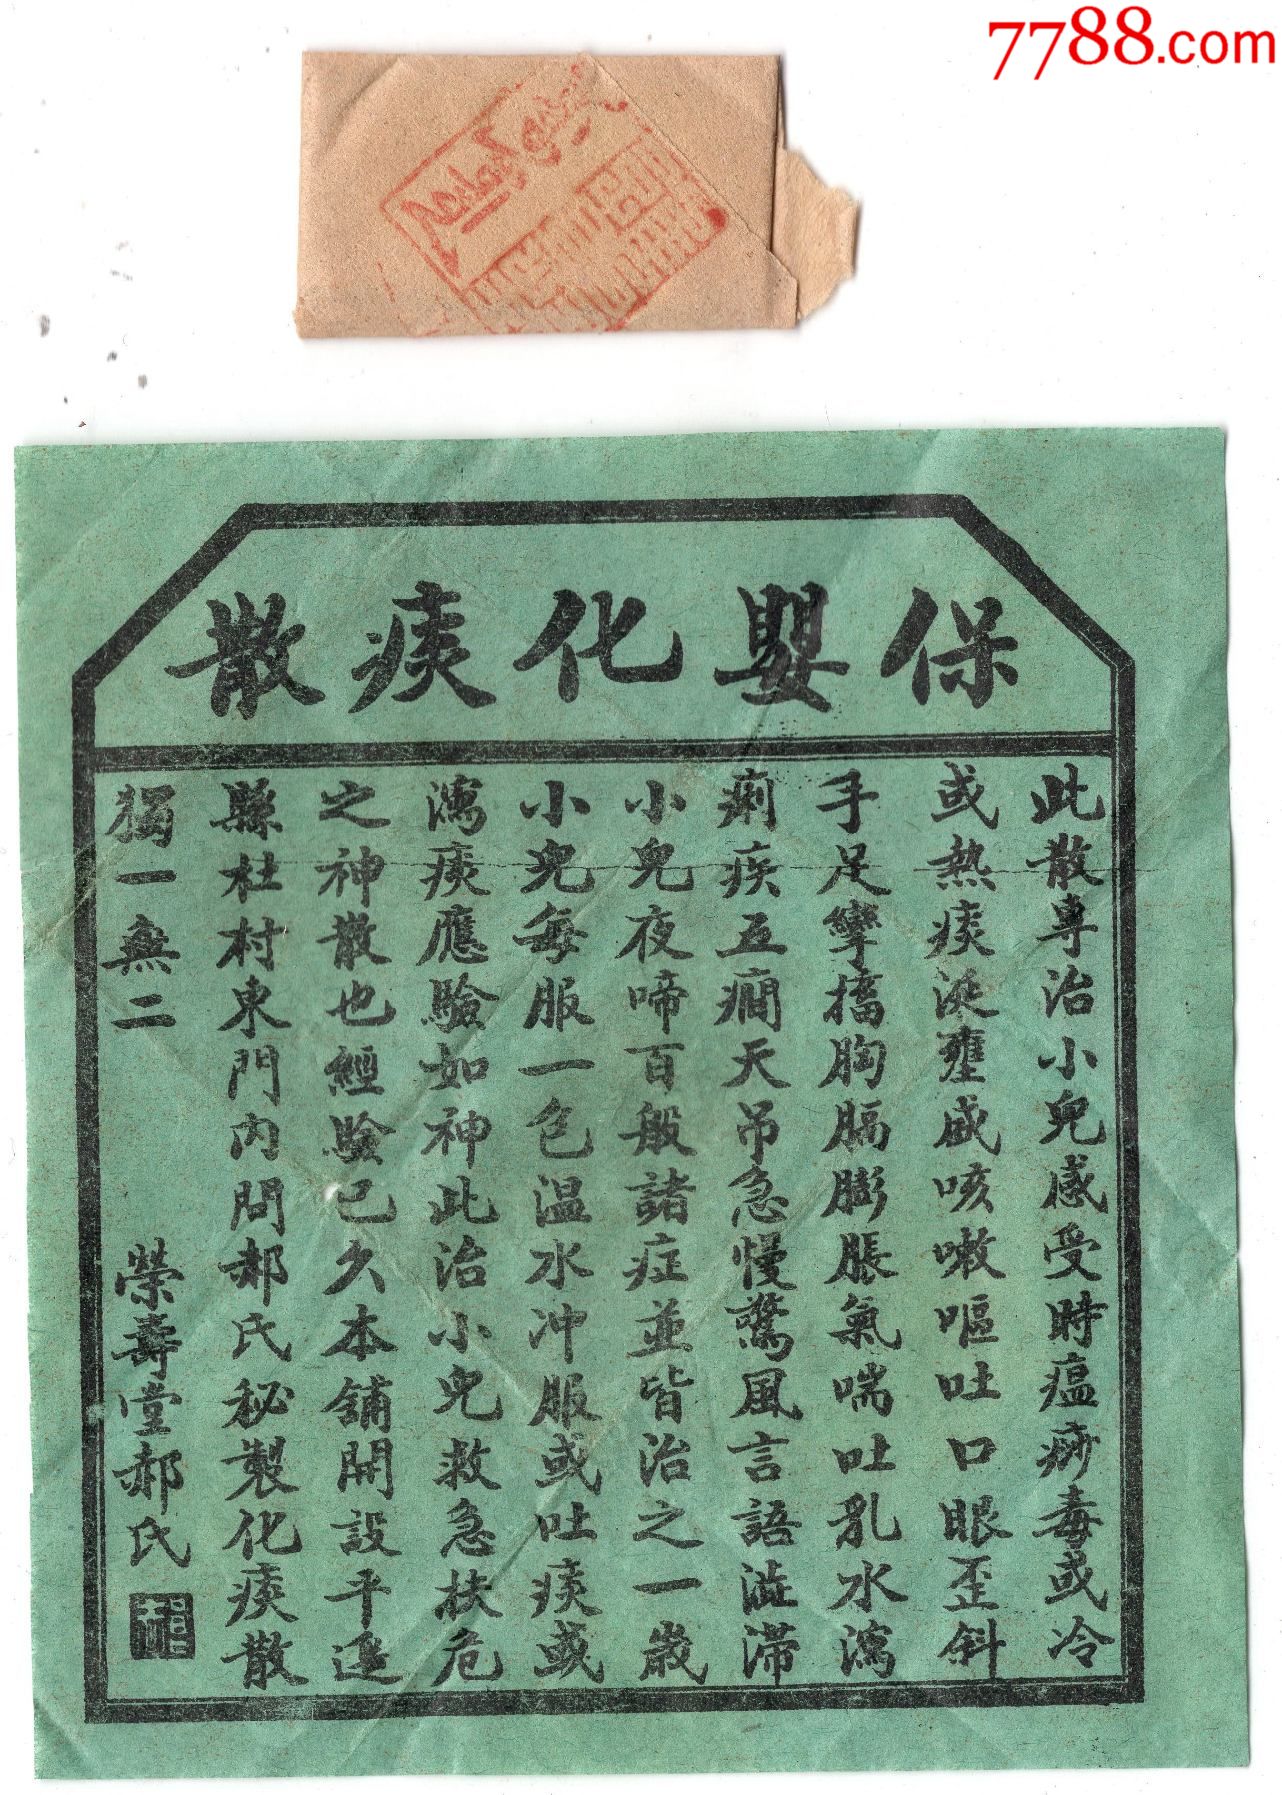 7788.com
保嬰化痰散
此散專治小兒感受時瘟痧毒或冷
或熱痰涎壅盛咳嗽嘔吐口眼歪斜
手足攣搐胸膈膨脹氣喘吐乳水瀉
痢疾五癇天吊急慢驚風言語澁滯
小兒夜啼百般諸症並皆治之一歲
小兒每服一包温水冲服或吐痰或
瀉痰應驗如神此治小兒救急扶危
之神散也經驗已久本舖開設平遥
縣杜村東門內問郝氏秘製化痰散
獨一無二
榮壽堂郝氏